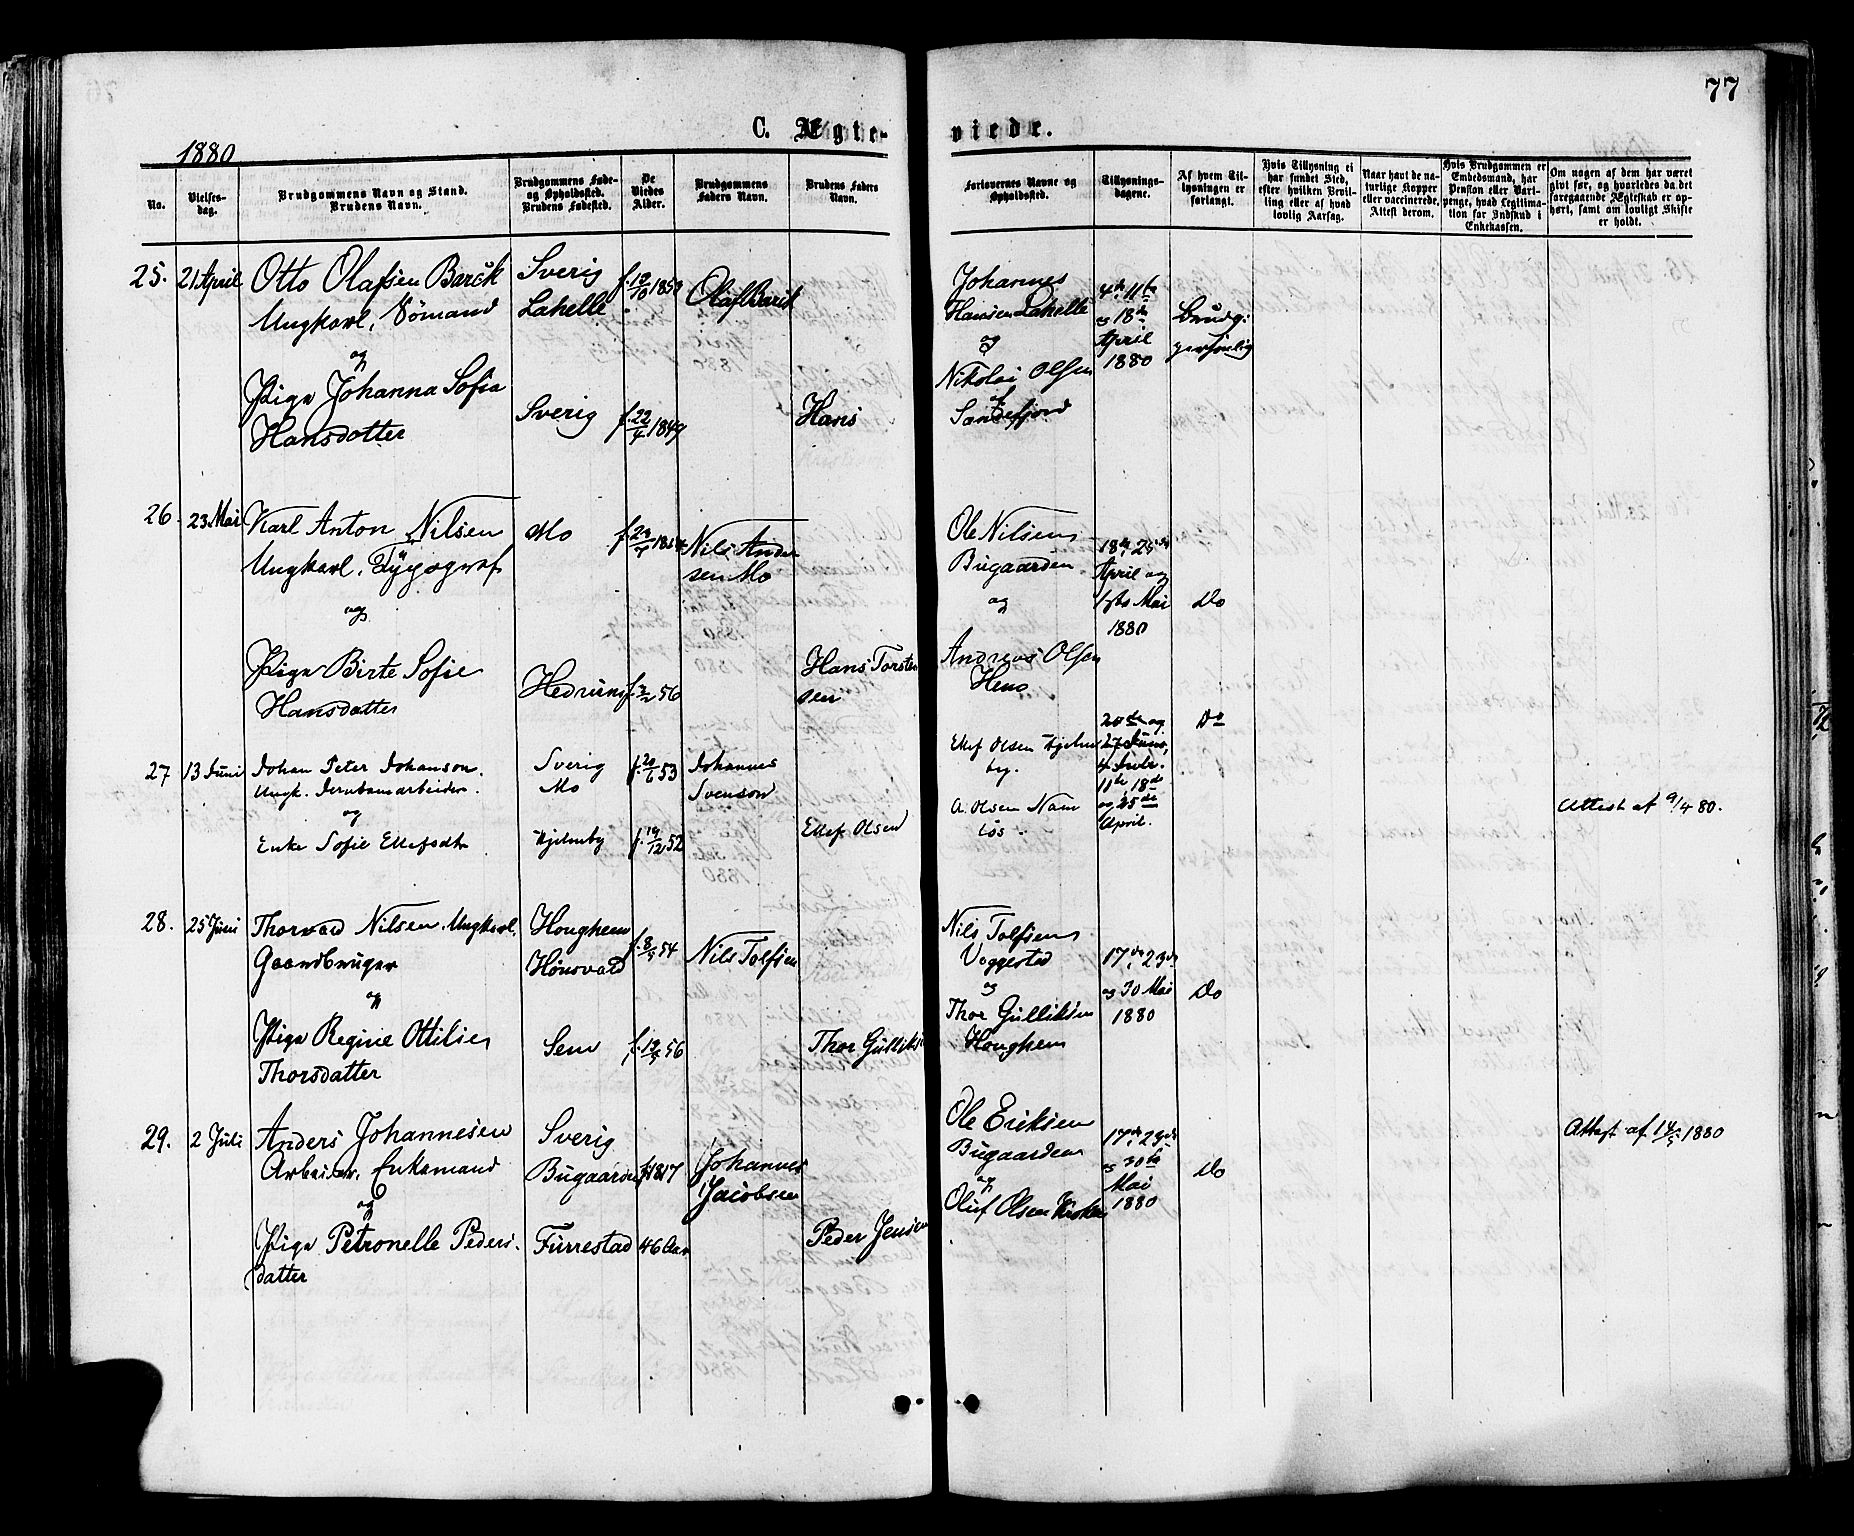 77
C. Ægte-
viede.
1880
No.
Vielses-
dag.
Brudgommens Navn og Stand.
Brudens Navn.
Brudgommens Føde-
og Opholdssted.
Brudens Fødested.
De
Viedes
Alder.
Brudgommens
Faders Navn.
Brudens Faders
Navn.
Forlovernes Navne og
Opholdssted.
Tillysnings-
dagene.
Af hvem Til-
lysningen er
forlangt.
Hvis Tillysning ei
har fundet Sted,
efter hvilken Bevil-
ling eller af hvad
lovlig Aarsag.
Naar havt de na-
turlige Kopper
eller vaccinerede.
Attest derom.
Hvis Brudgommen er
Embedsmand, har
Pension eller Vart-
penge, hvad Legitima-
tion for Indskud i
Enkekassen.
Om nogen af dem har været
givt før, og hvorledes da det
foregaaende Ægteskab er op-
hørt, samt om lovligt Skifte
er holdt.
25. 21 April
Otto Olafsen Barck
Ungkarl, Sømand
og
Pige Johanna Sofia
Hansdatter
Sverig
Lahelle
Sverig
f. 22/4 1849
Olaf Barck
Hans
Johannes
Hansen Lahelle
og
Nikolai Olsen
af
Sandefjord
4de, 11te
og 18de
April
1880
Brudg.
personlig
26. 23 Mai
Karl Anton Nilsen
Ungkarl, Typograf
og
Pige Birte Sofie
Hansdatter
Mo
Hedrum
Nils Ander
sen Mo
Hans Torsten
sen
Ole Nilsen
Bugaarden
og
Andreas Olsen
Hem
18de, 25de
April og
1ste Mai
1880
Do
27 13 Juni
Johan Peter Johanson.
Ungk. Jernbanearbeider.
og
Enke Sofie Ellefsdtr
Sverig
Mo
Hjelmby
f. 20/6 53
f. 19/12 52
Johannes
Svenson
Ellef Olsen
Ellef Olsen Hjelm
by.
A. Olsen Nam
løs
20de og
27 Juni,
4 Juli.
11te, 18de
og 25de
April.
Do
Attest af 9/4 80.
28. 25 Juni
Thorvald Nilsen, Ungkarl,
Gaardbruger
og
Pige Regine Ottilie
Thorsdatter
Haughem
Hønsvald
Sem
Nils Tolfsen
Thor Gulliks
Nils Tolfsen
Veggestad
og
Thor Gulliksen
Haughem
17de, 23de
og 30 Mai
1880
Do
29. 2 Juli
Anders Johannesen
Arbeider, Enkemand
og
Pige Petronelle Peders
datter
Sverig
Bugaarden
Furrestad
f. 1817
46 Aar
Johannes
Jacobsen
Peder Jensen
Ole Eriksen
Bugaarden
og
Oluf Olsen
17de, 23de
og 30te
Mai
1880
Do
Attest af 14/5 1880